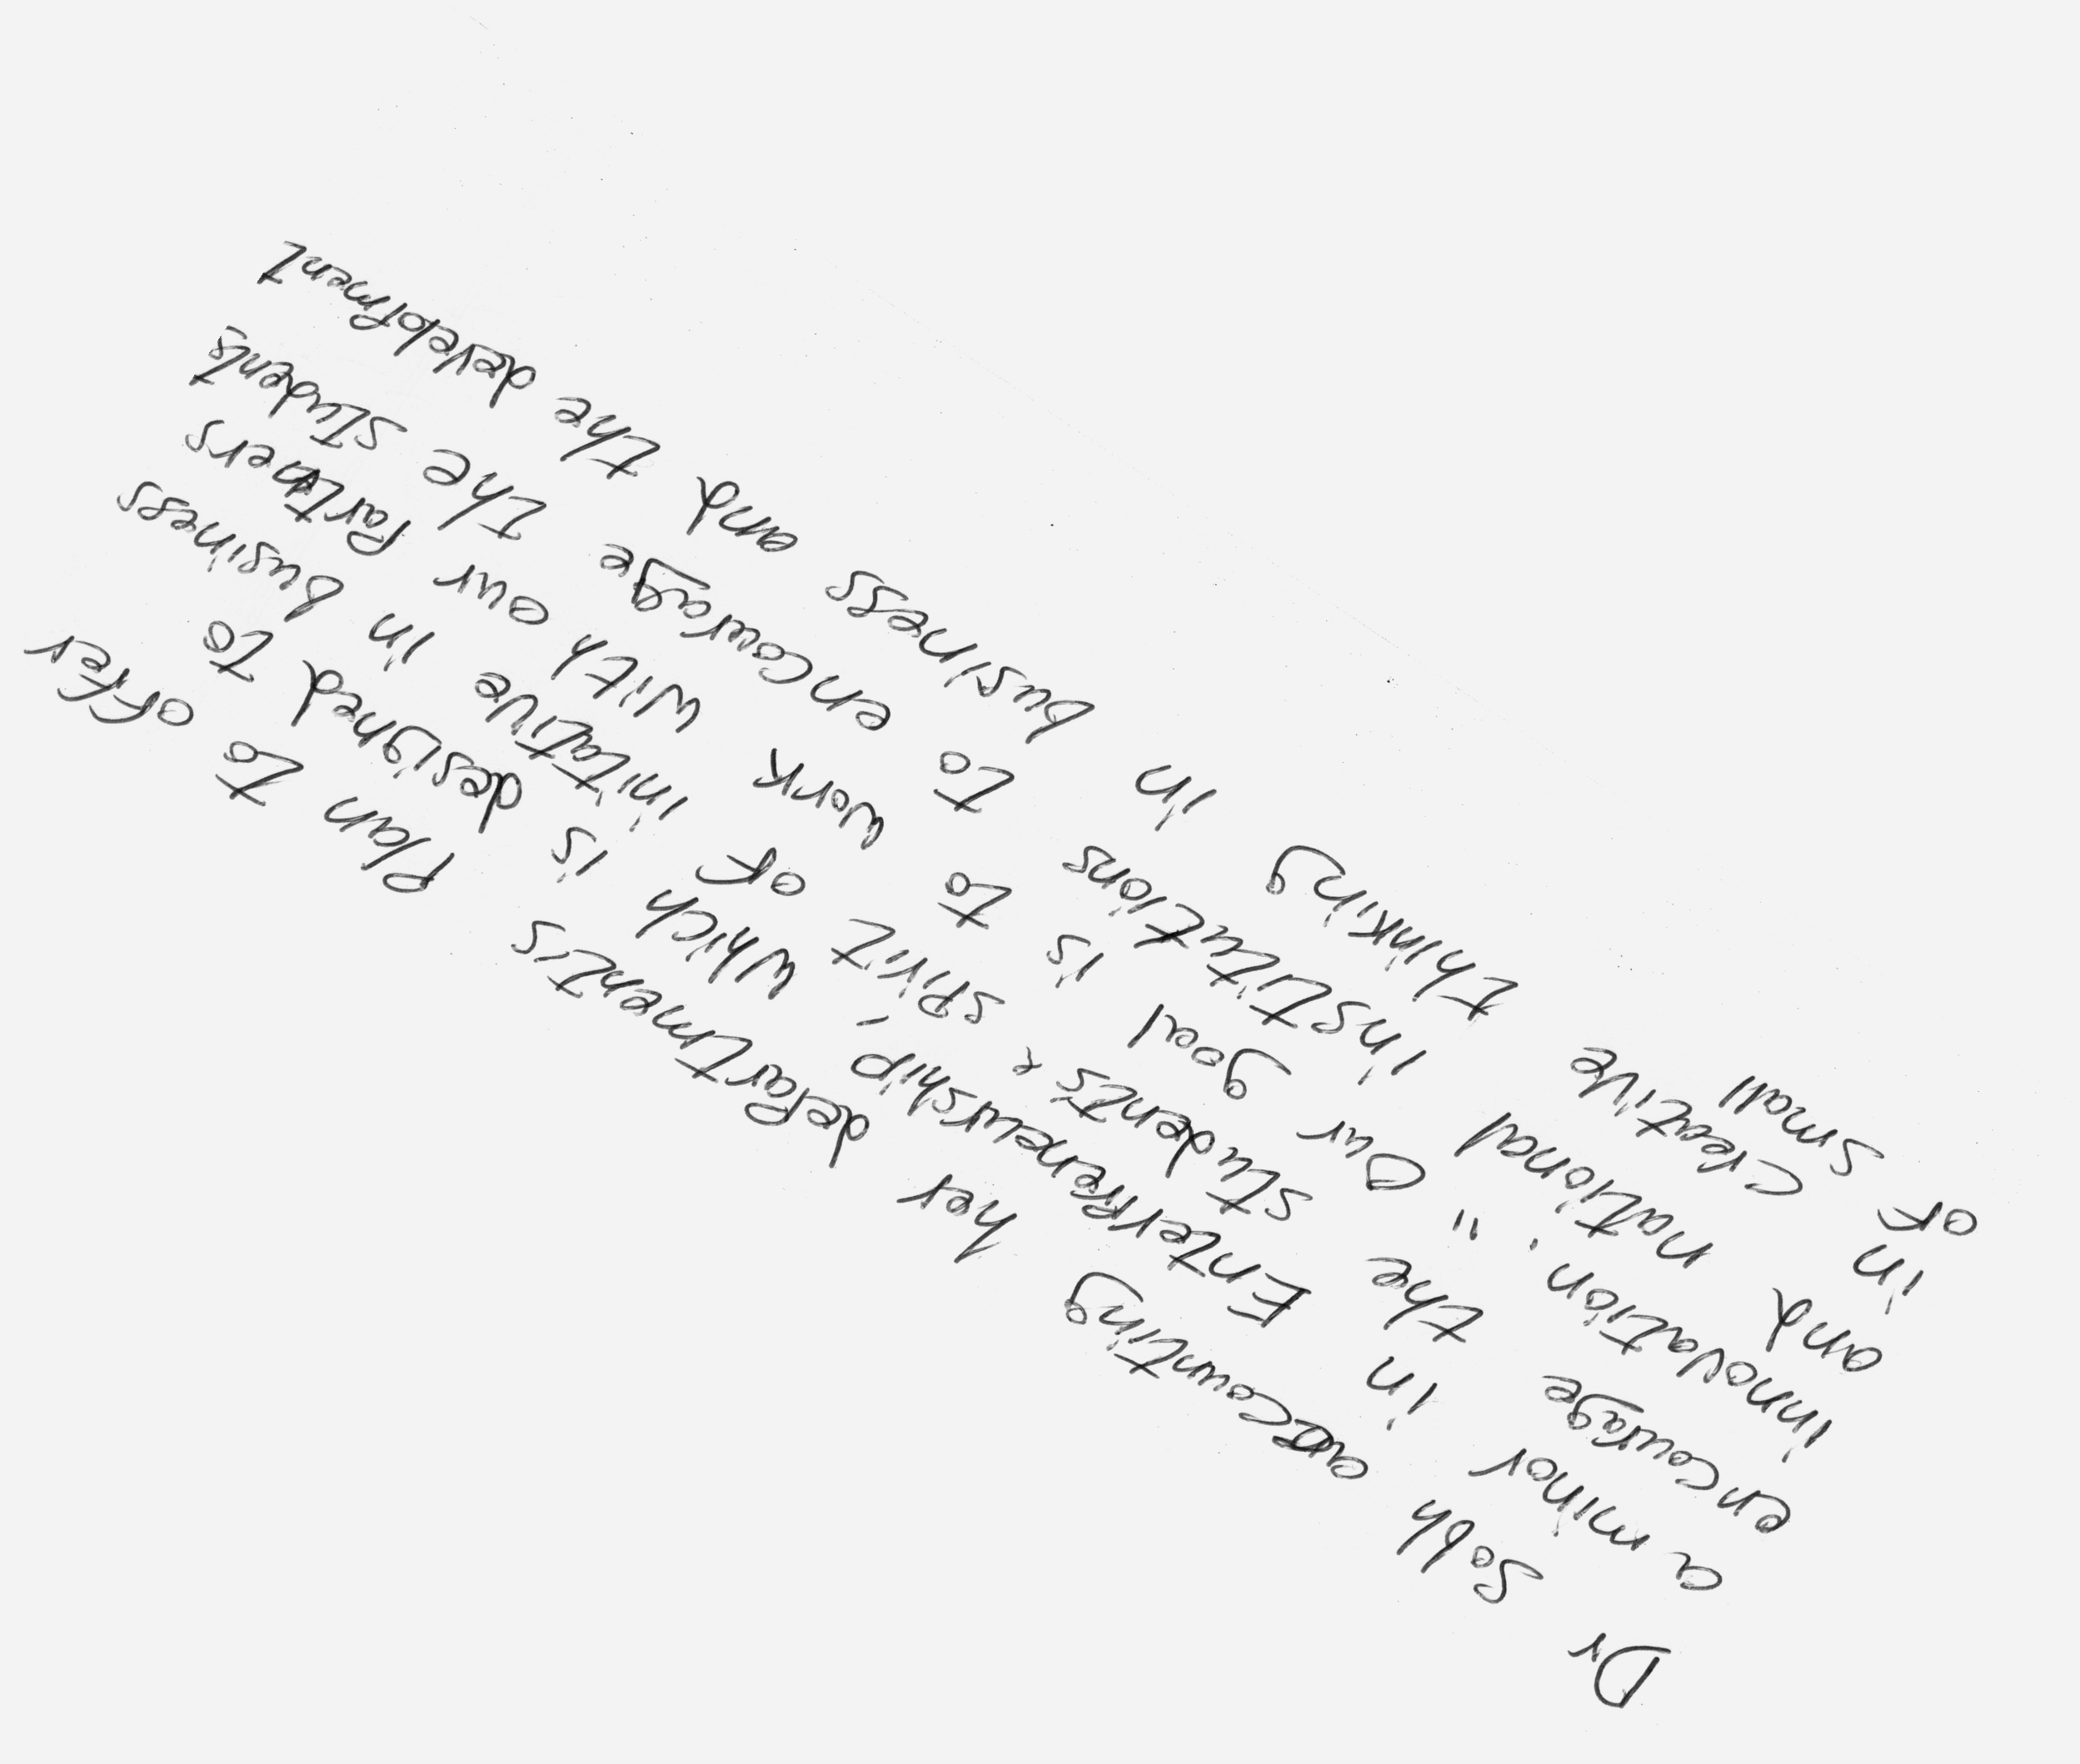 Dr Sobh accounting her departments plan to offer
a minor in Enterpreneurship - which is designed to
encourage the students & spirit of initative in business
innovation. " Our goal is to work with our partners
and national institutions to encourage the students
in creative thinking in business and the development
of small